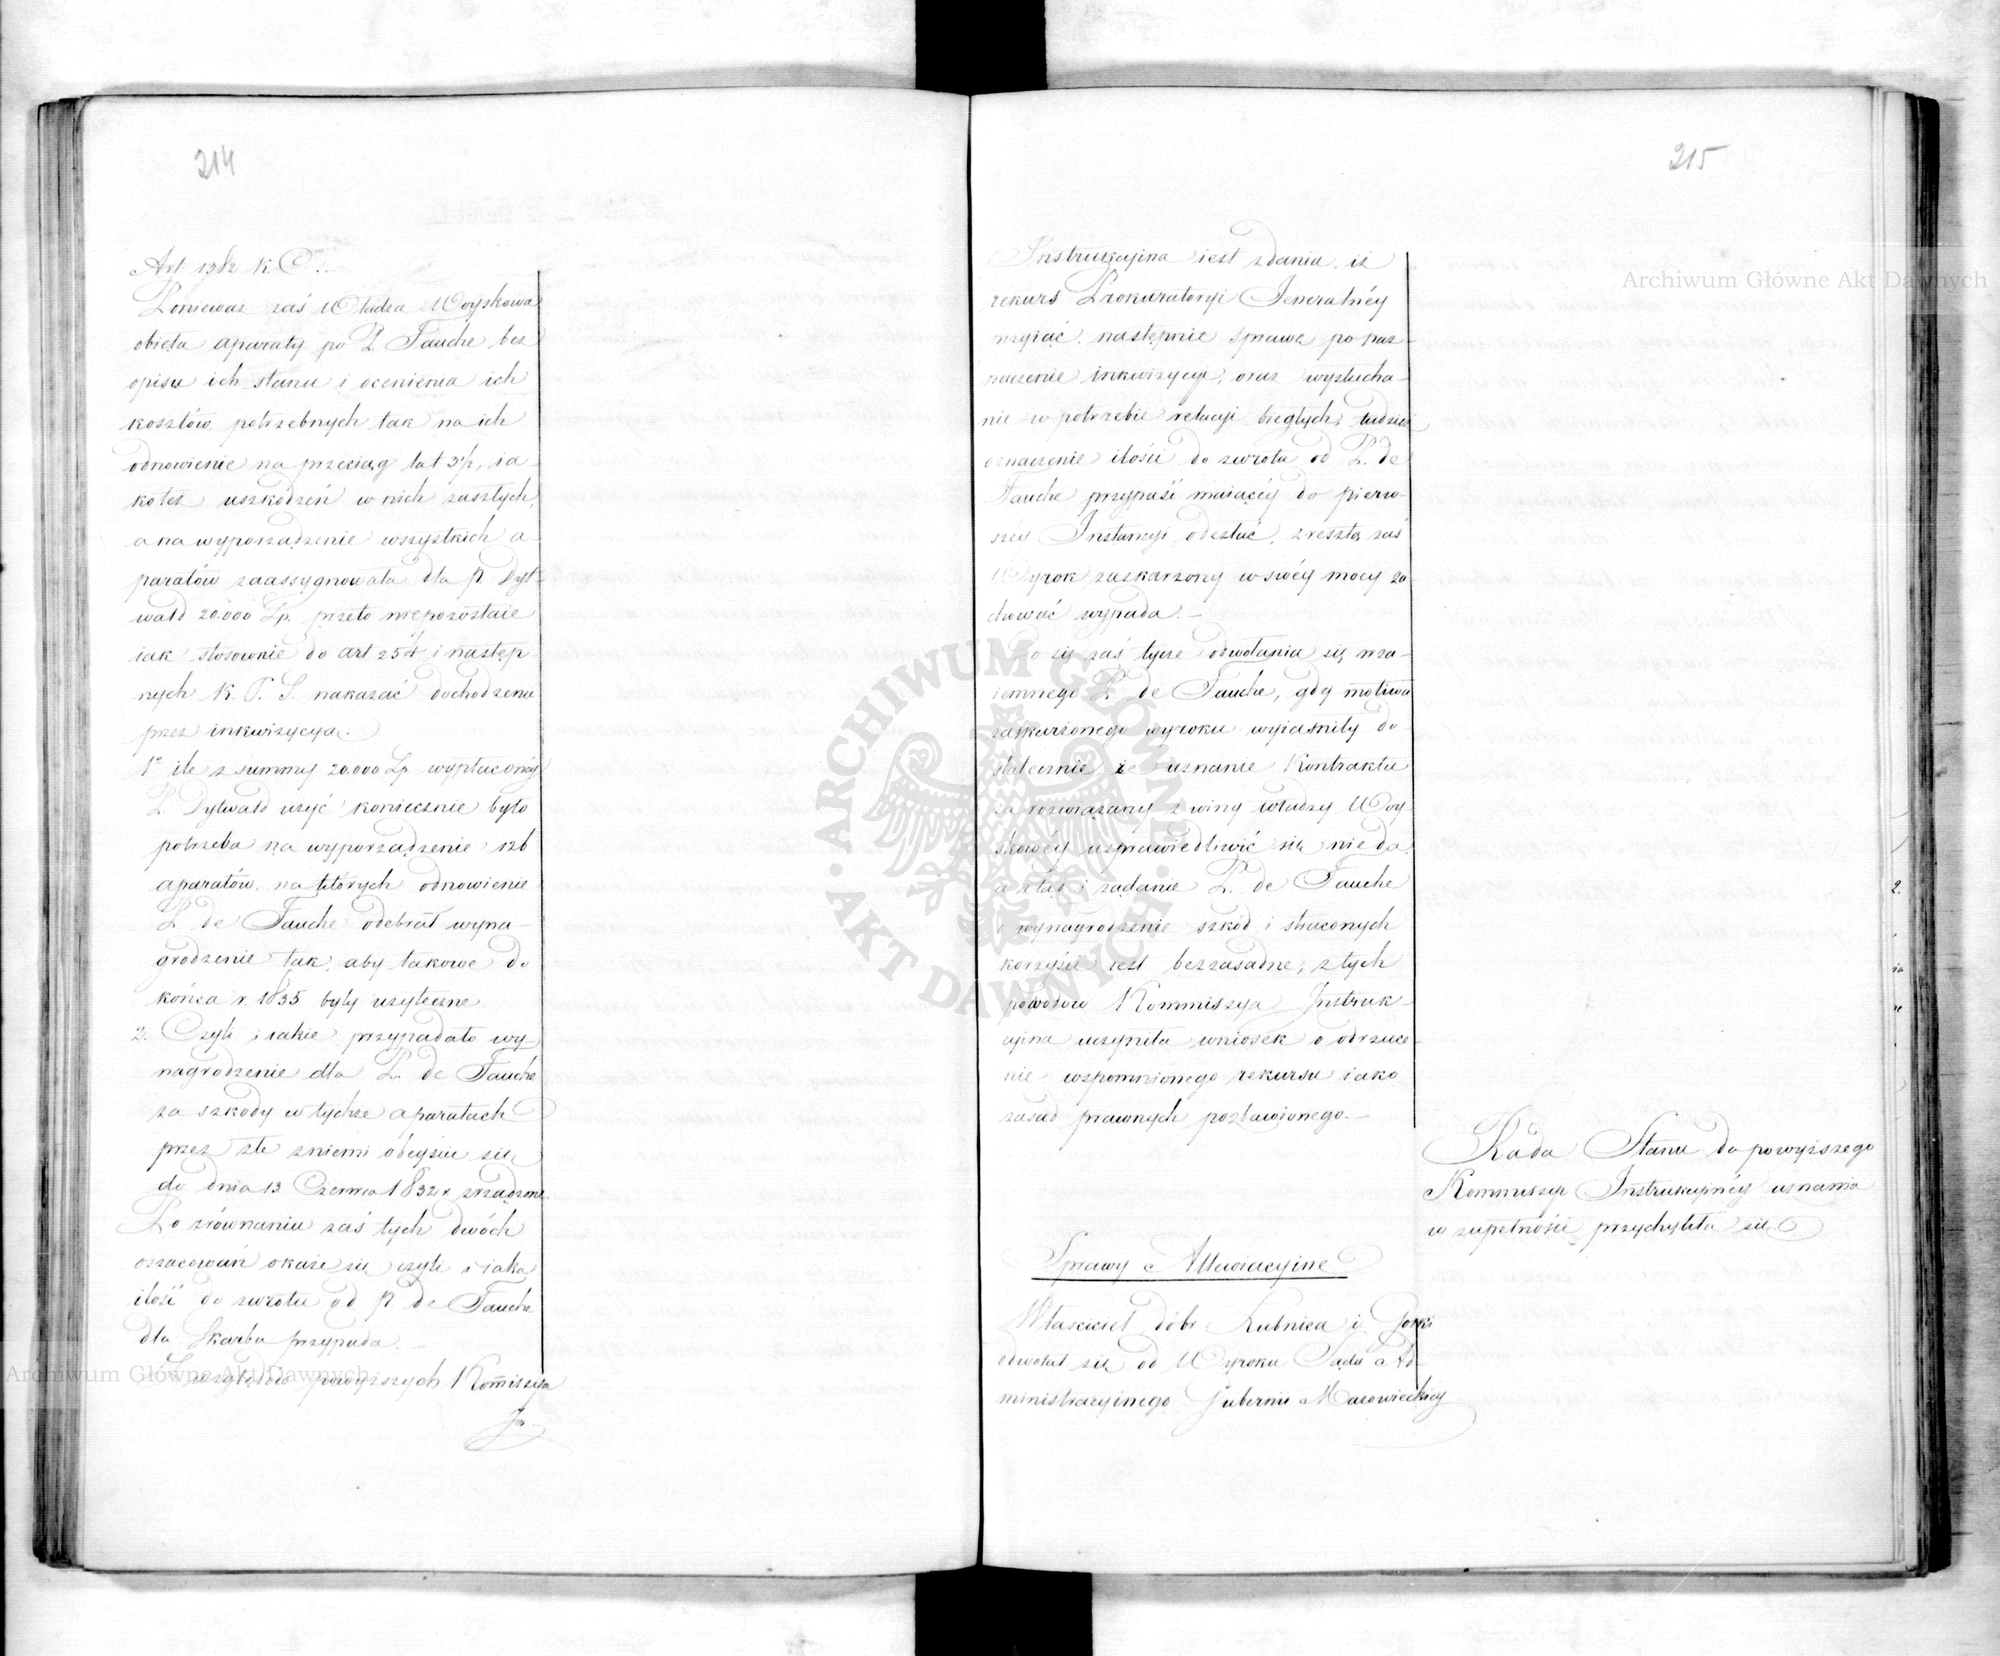 214
Art: 1382 K. C.
Ponieważ zaś Władza Woyskowa
obięła aparaty po P. Fauche bez
opisu ich stanu i ocenienia ich
kosztów potrzebnych tak na ich
odnowienie na przeciąg lat 3½, ia-
koteż uszkodzeń w nich zaszłych,
a na wyporządzenie wszystkich a
paratów zaassygnowała dla P. Dyt
wald 20.000 Zp. przeto niepozostaie
iak stosownie do art 254 i następ-
nych K. P. S. nakazać dochodzenie
przez inkwizycyą.
1º ile z summy 20.000 Zp wypłaconéy
P. Dytwald użyć koniecznie było
potrzeba na wyporządzenie 126
aparatów, na których odnowienie
P. de Fauche odebrał wyna-
grodzenie tak, aby takowe do
końca r. 1835 były użyteczne
2. Czyli i iakie przypadało wy
nagrodzenie dla P. de Fauche
za szkody w tychże aparatach
przez złe zniemi obeyście się
do dnia 13 Czerwca 1832 r. zrządzone
Po zrównaniu zaś tych dwóch
oszacowań okaże się czyli i iaka
ilość do zwrotu od P. de Fauche
dla Skarbu przypada.
Z względów powyższych Kommissya
In-
215
Instrukcyjna iest zdania, iż
rekurs Prokuratoryi Jeneralnéy
przyiąć, następnie sprawę po prze-
znaczenie inkwizycyi, oraz wysłucha-
nie w potrzebie relacyi biegłych, tudzież
oznaczenie ilości do zwrotu od P. de
Fauche przypaść maiącéy do pierw-
széy Instancyi odesłać, zresztą zaś
Wyrok zaskarżony w swéy mocy za
chować wypada.
Co się zaś tycze odwołania się wza-
iemnego P. de Fauche, gdy motiwa
zaskarżonego wyroku wyiaśniły do
statecznie, że uznanie Kontraktu
za rozwiązany z winy władzy Woy
skowéy usprawiedliwić się nie da,
a ztąd i żądanie P. de Fauche
o wynagrodzenie szkód i straconych
korzyści iest bezzasadne, z tych
powodów Kommissya Instruk-
cyjna uczyniła wniosek o odrzuce-
nie wspomnionego rekursu iako
zasad prawnych pozbawionego.
Rada Stanu do powyższego
Kommissyi Instrukcyjnéy uznania
w zupełności przychyliła się.
Sprawy Allewiacyjne
Właściciel dóbr Kutnica i Gorki
odwołał się od Wyroku Sądu Ad-
ministracyinego Gubernii Mazowieckiéy
Archiwum Główne Akt Dawnych
Archiwum Główne Akt Dawnych
ARCHIWUM GŁÓWNE AKT DAWNYCH